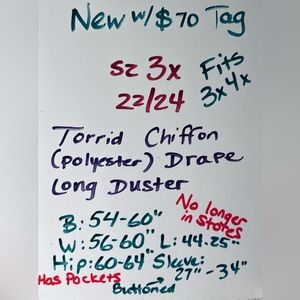 New w/$70 Tag
sz 3x Fits
22/24 3x4x
Torrid Chiffon
(polyester) Drape
Long Duster
No longer
in stores
B: 54-60"
W: 56-60" L: 44.25"
Hip: 60-64" Sleeve:
Has Pockets 27" - 34"
Buttoned